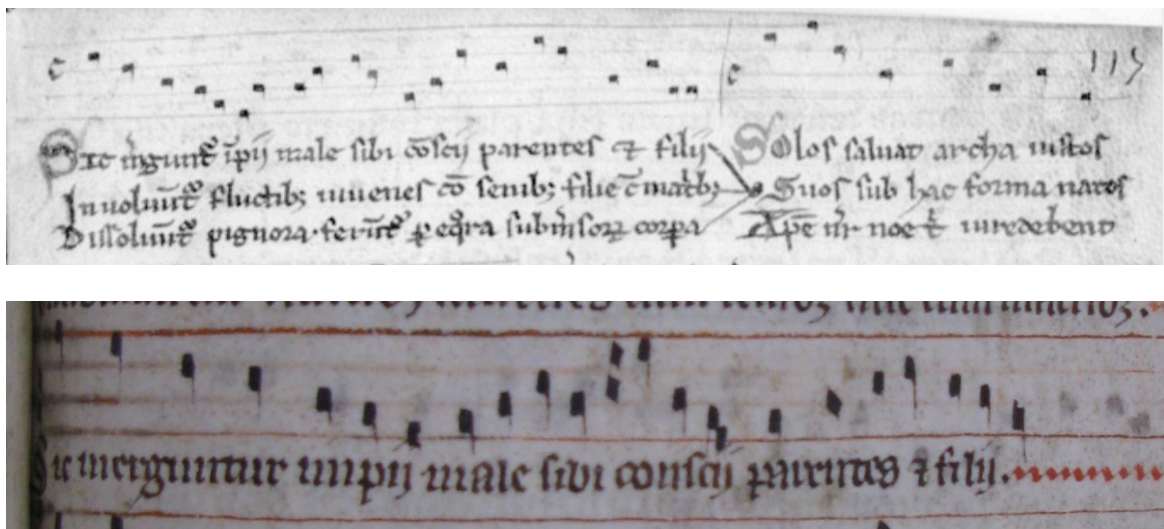 115
Sic m̃gunt᷑ ip̃ii male sibi cõscii parentes ⁊ filii Solos saluat archa iustos
Inuolũnt᷑ fluctib; iuuenes cõ senib; filie c̃ mat̃b; Suos sub hac forma natos
Dissolũnt᷑ pignora ferũt᷑ p eq̃ra subm̃soꝝ corpa Ap̃e ur noe
Sic merguntur impii male sibi conscii parentes ⁊ filii.